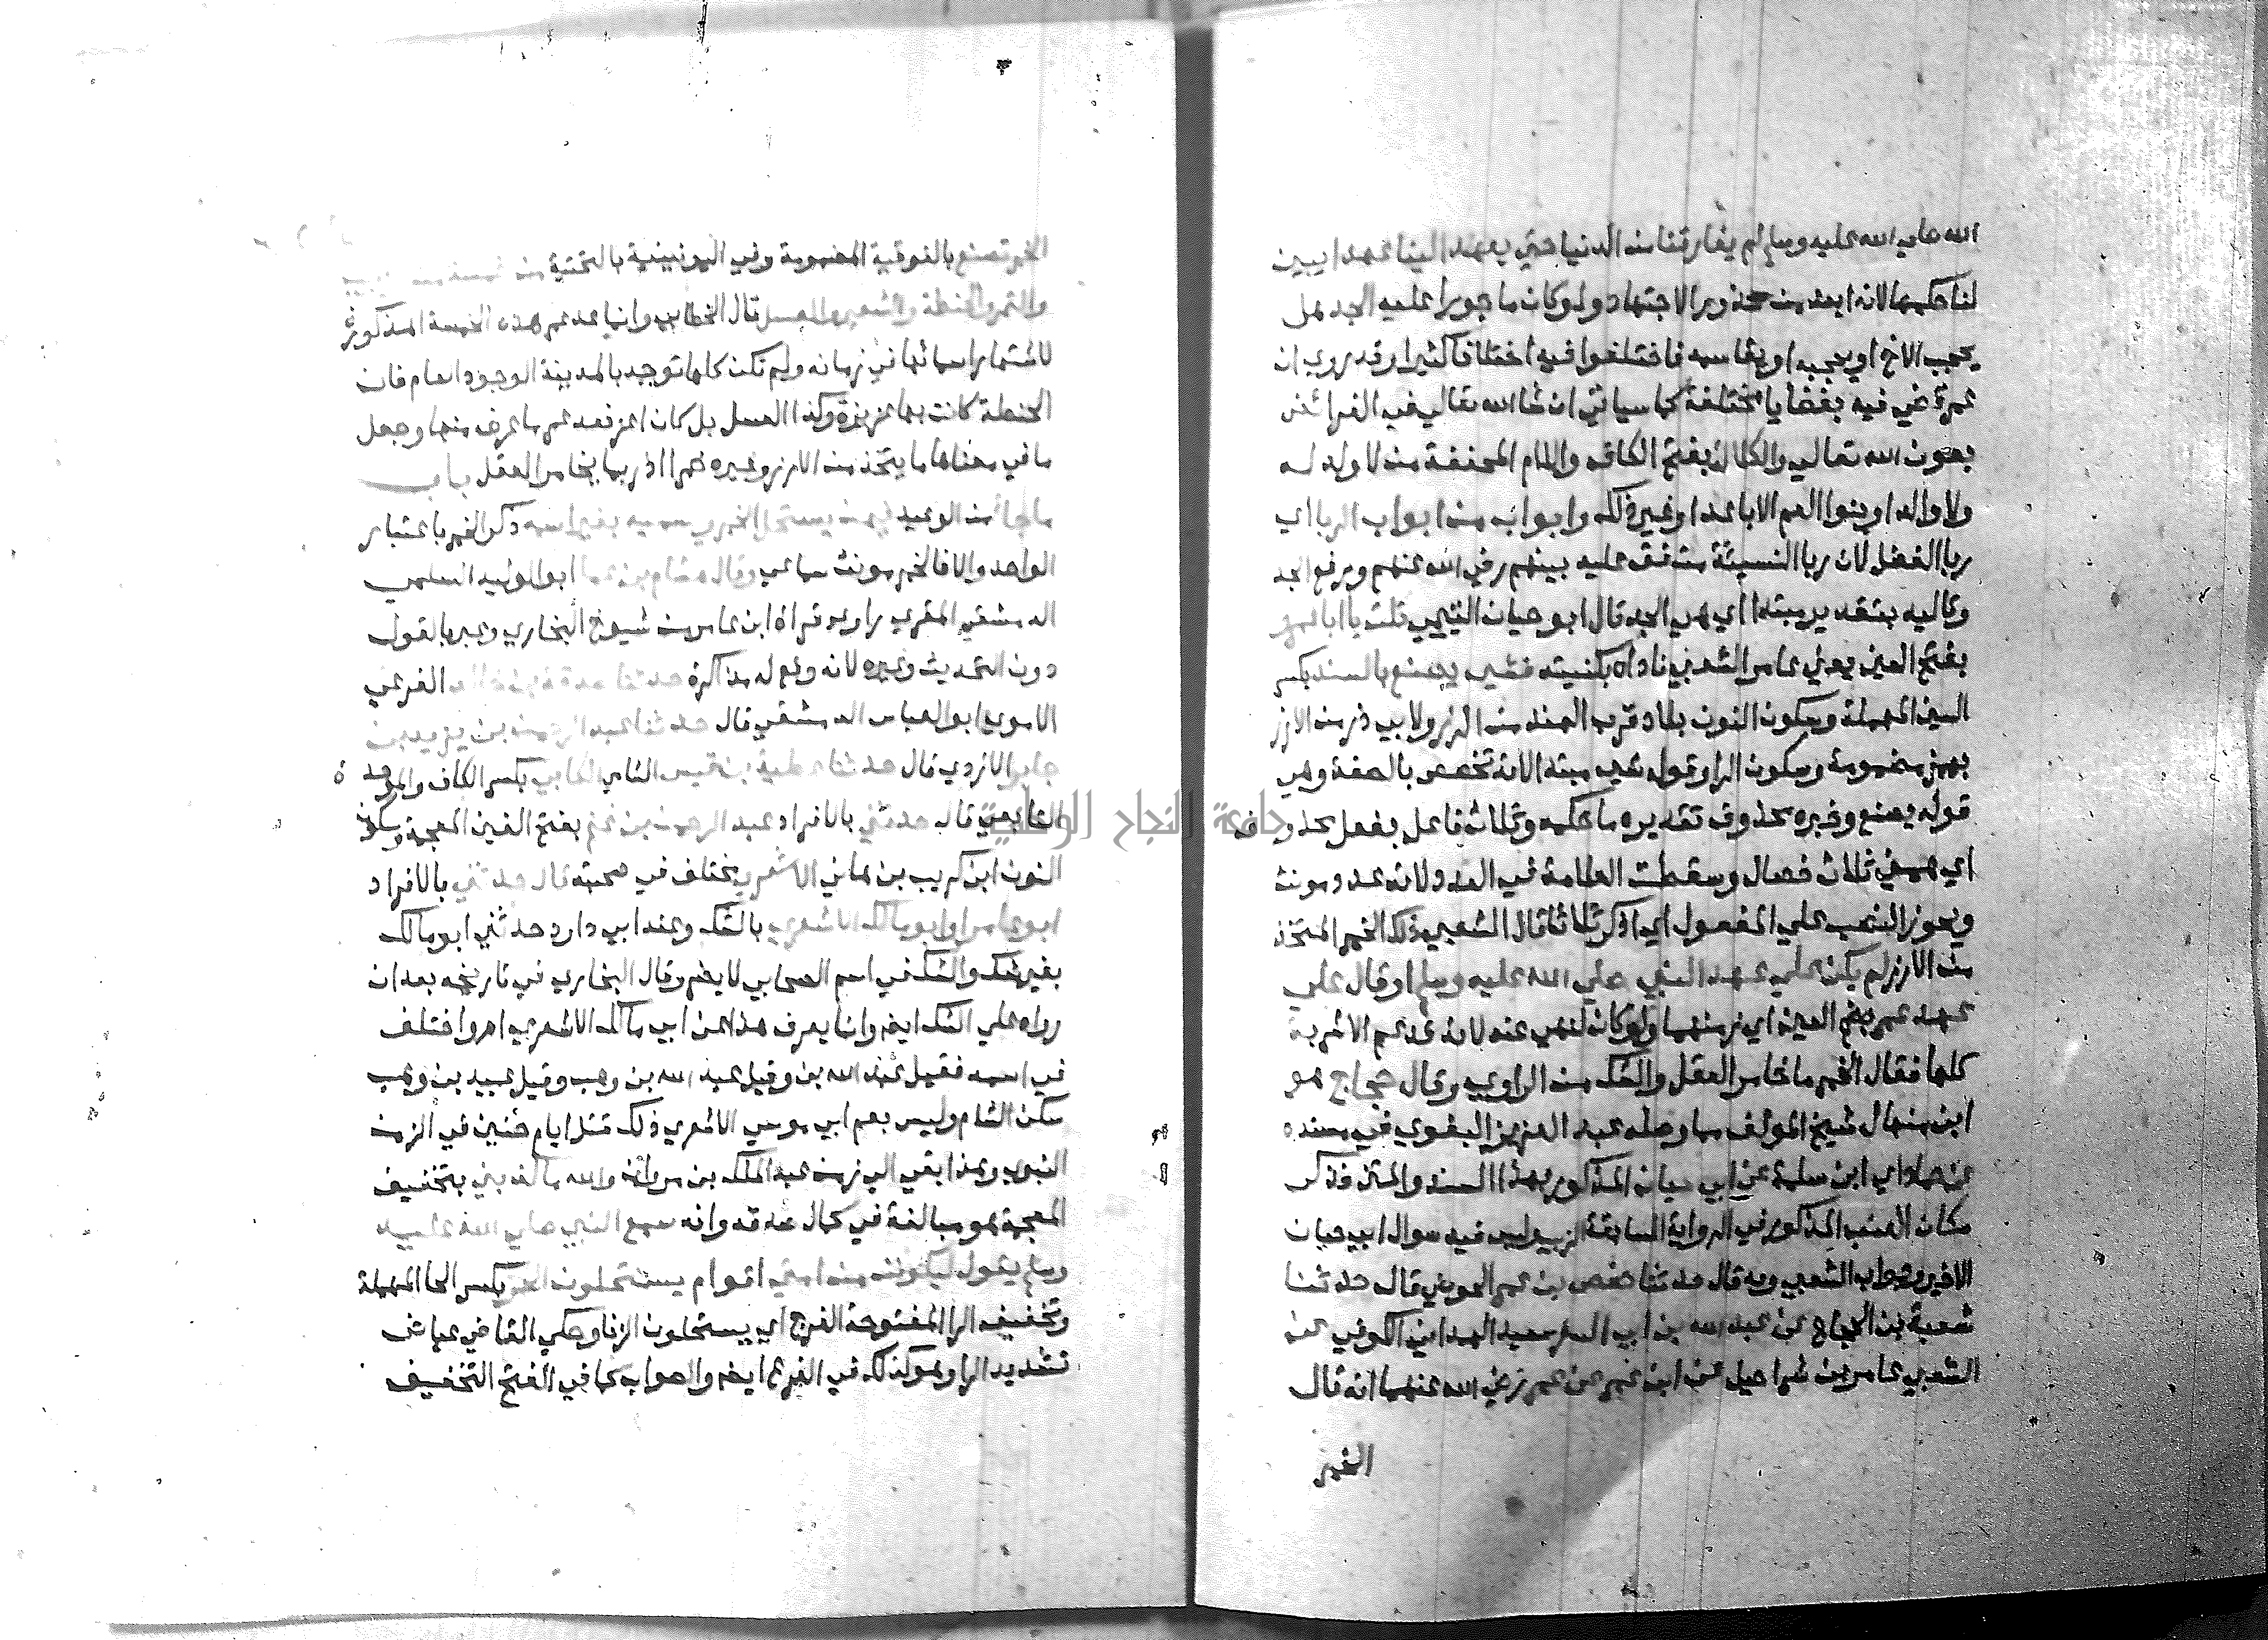 الله صلي الله عليه وسلم لم يفارقنا من الدنيا حتي يعهد الينا عهدا يبين
لنا حكمها لانه ابعد من محذور الاجتهاد ولو كان ماجورا عليه الجد هل
يحجب الاخ او يحجبه او يقاسمه فاختلفوا فيه اختلافا كثيرا وقد روي ان
عمر قضي فيه بقضايا مختلفة كما سياتي ان شا الله تعالي في الفرائض
بعون الله تعالي والكلالة بفتح الكاف واللام المخففة من لا ولد له
ولا والد او بنوا العم الاباعد او غير ذلك وابواب من ابواب الربا اي
ربا الفضل لان ربا النسيئة متفق عليه بينهم رضي الله عنهم ويرفع الجد
وتاليه بتقدير مبتدا اي هي الجد قال ابو حيان التيمي قلت يا ابا عمرو
بفتح العين يعني عامر الشعبي ناداه بكنيته فشي يصنع بالسند بكسر
السين المهملة وسكون النون بلاد قرب الهند من الرز ولابي ذر من الارز
بهمز مضمومة وسكون الرا وقوله شي مبتدا لانه تخصص بالصفة وهي
قوله يصنع وخبره محذوف تقديره ما حكمه وثلاث فاعل بفعل محذوف
اي همني ثلاث خصال وسقطت العلامة في العدد لانه عدد مونث
ويجوز النصب علي المفعول اي اذكر ثلاثا قال الشعبي ذلك الخمر المتخذ
من الارز لم يكن علي عهد النبي صلي الله عليه وسلم او قال علي
عهد عمر بضم العين اي زمنهما ولو كان لنهي عنه لانه قد عم الاشربة
كلها فقال الخمر ما خامر العقل والشك من الراوي وقال حجاج هو
ابن منهال شيخ المولف مما وصله عبد العزيز البغوي في مسنده
عن حماد اي ابن سلمة عن ابي حيان المذكور بهذا السند والمتن فذكر
مكان العنب المذكور في الرواية السابقة الزبيب وليس فيه سوال ابي حيان
الاخير وجواب الشعبي وبه قال حدثنا حفص بن عمر الحوضي قال حدثنا
شعبة بن الحجاج عن عبد الله بن ابي السفر سعيد الهمداني الكوفي عن
الشعبي عامر بن شراحيل عن ابن عمر عن عمر رضي الله عنهما انه قال
الخمر
الخمر تصنع بالفوقية المضمومة وفي اليونينية بالتحتية من خمسة من الزبيب
والتمر والحنطة والشعير والعسل قال الخطابي وانما عد عمر هذه الخمسة المذكورة
لاشتهار اسمائها في زمانه ولم تكن كلها توجد بالمدينة الوجود العام فان
الحنطة كانت بها عزيزة وكذا العسل بل كان اعز فعد عمر ما عرف منها وجعل
ما في معناها ما يتخذ من الارز وغيره خمرا اذ ربما يخامر العقل باب
ما جا من الوعيد فيمن يستحل الخمر ويسميه بغير اسمه ذكر الخمر باعتبار
الواحد والا فالخمر مونث سماعي وقال هشام بن عمار ابو الوليد السلمي
الدمشقي المقري راوي قراة ابن عامر من شيوخ البخاري وعبر بالقول
دون التحديث وغيره لانه وقع له مذاكرة حدثنا صدقة بن خالد القرشي
الاموي ابو العباس الدمشقي قال حدثنا عبد الرحمن بن يزيد بن
جابر الازدي قال حدثنا عطية بن قيس الشامي الكلابي بكسر الكاف والموحدة
التابعي قال حدثني بالافراد عبد الرحمن بن غنم بفتح الغين المعجمة وسكون
النون ابن كريب بن هاني الاشعري يختلف في صحبته قال حدثني بالافراد
ابو عامر او ابو مالك الاشعري بالشك وعند ابي داود حدثني ابو مالك
بغير شك والشك في اسم الصحابي لا يضر وقال البخاري في تاريخه بعد ان
رواه علي الشك ايضا وانما يعرف هذا عن ابي مالك الاشعري اهـ واختلف
في اسمه فقيل عبد الله بن وقيل عبد الله بن وهب وقيل عبيد بن وهب
سكن الشام وليس بعم ابي موسي الاشعري ذلك قتل ايام حنين في الزمن
النبوي وهذا بقي الي زمن عبد الملك بن مروان والله ما كذبني بتخفيف
المعجمة هو مبالغة في كمال صدقه وانه سمع النبي صلي الله عليه
وسلم يقول ليكونن من امتي اقوام يستحلون الحر بكسر الحا المهملة
وتخفيف الرا المفتوحة الفرج اي يستحلون الزنا وحكي القاضي عياض
تشديد الرا وهو كذلك في الفرع ايضا والصواب كما في الفتح التخفيف
جامعة النجاح الوطنية